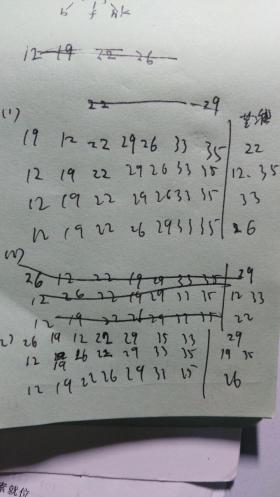 12 19 22 26
22 29
(1)
19 12 22 29 26 33 35 22
12 19 22 29 26 33 35 12. 35
12 19 22 29 26 33 35 33
12 19 22 26 29 33 35 26
(2)
26 12 22 19 29 33 35 29
12 26 22 19 29 33 35 12 33
12 19 22 26 29 33 35 22
2) 26 19 12 22 29 35 33 29
12 19 26 22 29 33 35 19 35
12 19 22 26 29 31 35 26
索就位